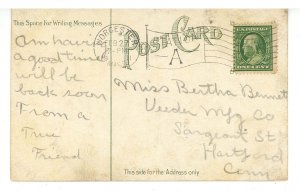 This Space for Writing Messages
POST CARD
WORCESTER
FEB 27
A
ONE CENT
am having
a good time
will be
back soon
From a
True
Friend
Miss Bertha Bennett
Veeder Mfg Co
Sargeant St
Hartford
Conn
This side for the Address only